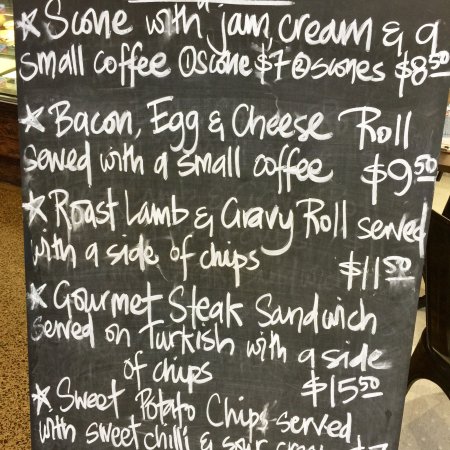 ★ Scone with jam, cream & a
small coffee ①scone $7 ②scones $8.50
★ Bacon, Egg & Cheese Roll
served with a small coffee $9.50
★ Roast Lamb & Gravy Roll served
with a side of chips $11.50
★ Gourmet Steak Sandwich
served on Turkish with a side
of chips $15.50
★ Sweet Potato Chips served
with sweet chilli & sour